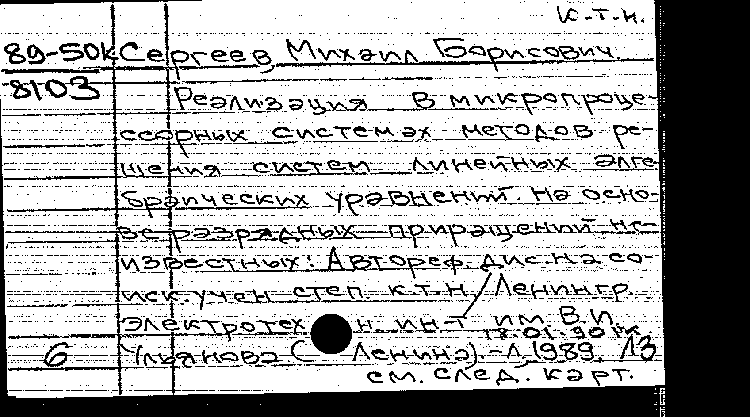 к.т.н.
89-50к Сергеев, Михаил Борисович.
8103
Реализация в микропроце-
ссорных системах методов ре-
шения систем линейных алге
браических уравнений на осно-
ве разрядных приращений не-
известных: Автореф. дис. на со-
иск. учен степ. к.т.н. / Ленингр.
электротех н. ин-т им. В.И.
18.01.90
6 Ульянова (Ленина). - Л, 1989. 13
см. след. карт.